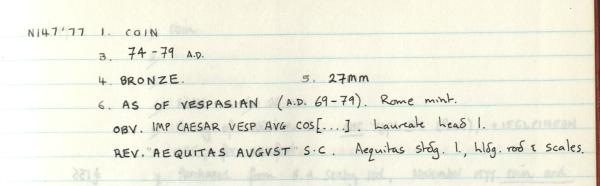 N147'77 1. COIN
3. 74-79 A.D.
4. BRONZE. 5. 27mm
6. AS OF VESPASIAN (A.D. 69-79). Rome mint.
OBV. IMP CAESAR VESP AVG COS[....]. Laureate head l.
REV. "AEQUITAS AVGVST" S.C. Aequitas stdg. l., hldg. rod & scales.